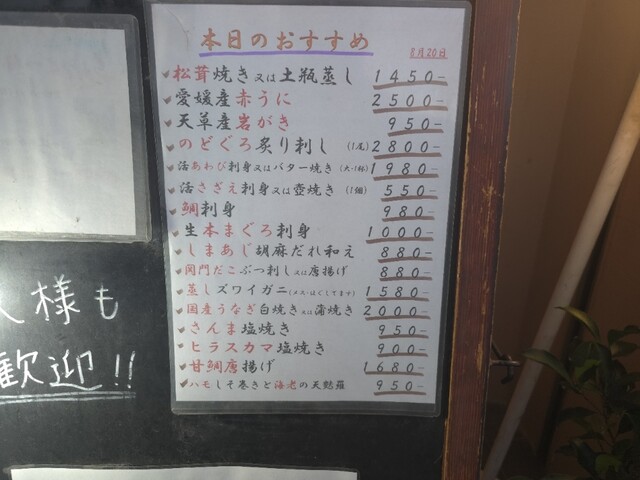 本日のおすすめ
8月20日
松茸焼き又は土瓶蒸し 1450-
愛媛産赤うに 2500-
天草産岩がき 950-
のどぐろ炙り刺し (1尾) 2800-
活あわび刺身又はバター焼き (大・1杯) 1980-
活さざえ刺身又は壺焼き (1個) 550-
鯛刺身 980-
生本まぐろ刺身 1000-
しまあじ胡麻だれ和え 880-
関門だこぶつ刺し又は唐揚げ 880-
蒸しズワイガニ(メス・ほぐしてます) 1580-
国産うなぎ白焼き又は蒲焼き 2000-
さんま塩焼き 950-
ヒラスカマ塩焼き 900-
甘鯛唐揚げ 1680-
ハモしそ巻きと海老の天麩羅 950-
様も
歓迎!!